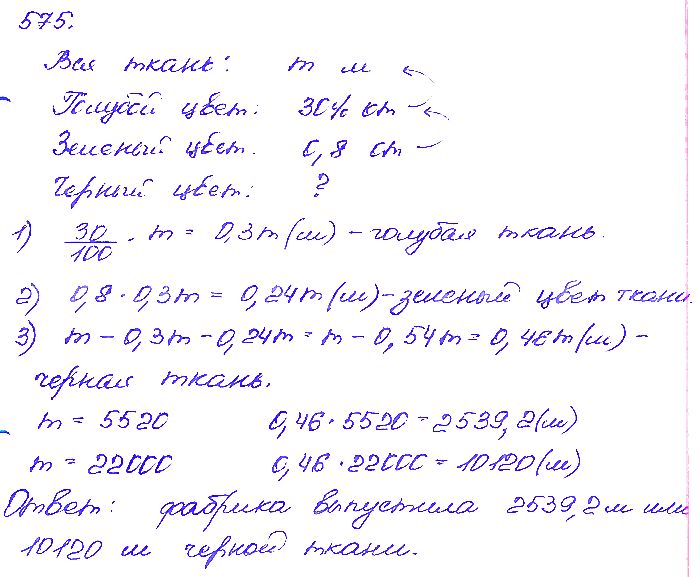 575.
Вся ткань: m м
Голубой цвет: 30% от
Зеленый цвет. 0,8 от
Черный цвет: ?
1) 30/100 · m = 0,3m (м) – голубая ткань.
2) 0,8 · 0,3m = 0,24m (м) – зеленый цвет ткани.
3) m – 0,3m – 0,24m = m – 0,54m = 0,46m (м) –
черная ткань.
m = 5520 0,46 · 5520 = 2539,2 (м)
m = 22000 0,46 · 22000 = 10120 (м)
Ответ: фабрика выпустила 2539,2 м или
10120 м черной ткани.